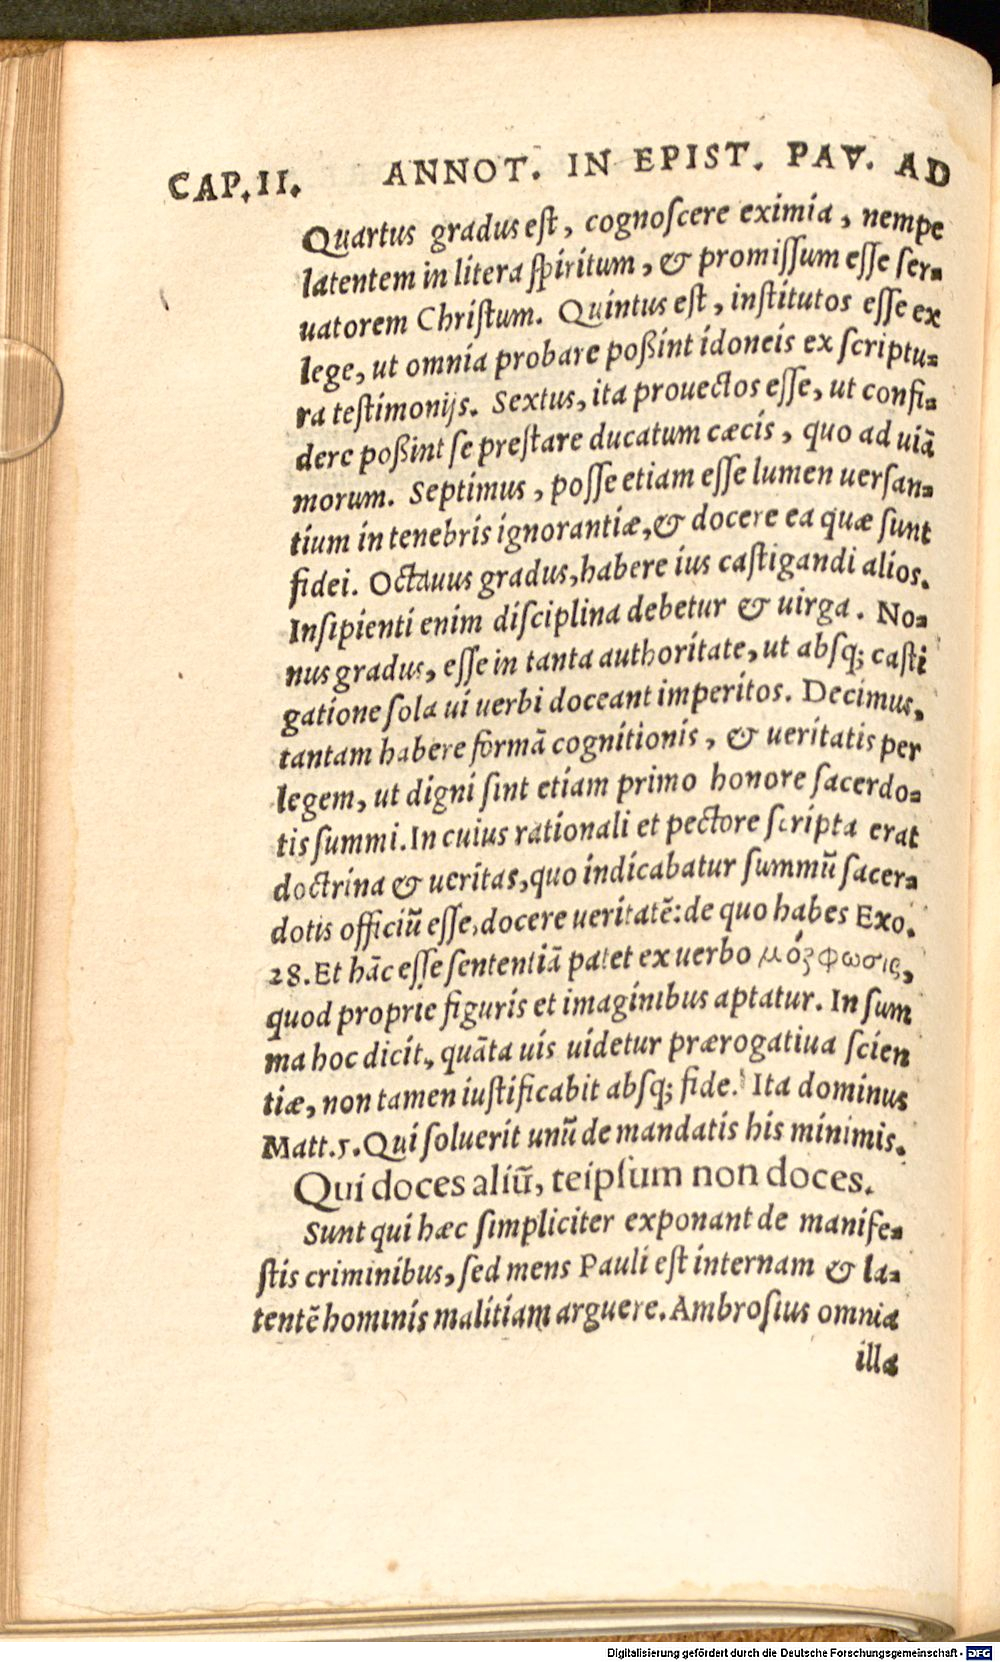 CAP.II. ANNOT. IN EPIST. PAV. AD
Quartus gradus est, cognoscere eximia, nempe
latentem in litera spiritum, & promissum esse ser-
uatorem Christum. Quintus est, institutos esse ex
lege, ut omnia probare poßint idoneis ex scriptu-
ra testimonijs. Sextus, ita prouectos esse, ut confi-
dere poßint se prestare ducatum cæcis, quo ad uiã
morum. Septimus, posse etiam esse lumen uersan-
tium in tenebris ignorantiæ, & docere ea quæ sunt
fidei. Octauus gradus, habere ius castigandi alios.
Insipienti enim disciplina debetur & uirga. No-
nus gradus, esse in tanta authoritate, ut absq; casti
gatione sola ui uerbi doceant imperitos. Decimus,
tantam habere formã cognitionis, & ueritatis per
legem, ut digni sint etiam primo honore sacerdo-
tis summi. In cuius rationali et pectore scripta erat
doctrina & ueritas, quo indicabatur summũ sacer-
dotis officiũ esse, docere ueritatẽ: de quo habes Exo.
28. Et hãc esse sententiã patet ex uerbo μόρφωσις,
quod proprie figuris et imaginibus aptatur. In sum
ma hoc dicit, quãta uis uidetur prærogatiua scien
tiæ, non tamen iustificabit absq; fide. Ita dominus
Matt.5. Qui soluerit unũ de mandatis his minimis.
Qui doces aliũ, teipsum non doces.
Sunt qui hæc simpliciter exponant de manife-
stis criminibus, sed mens Pauli est internam & la-
tentẽ hominis malitiam arguere. Ambrosius omnia
illa
Digitalisierung gefördert durch die Deutsche Forschungsgemeinschaft - DFG